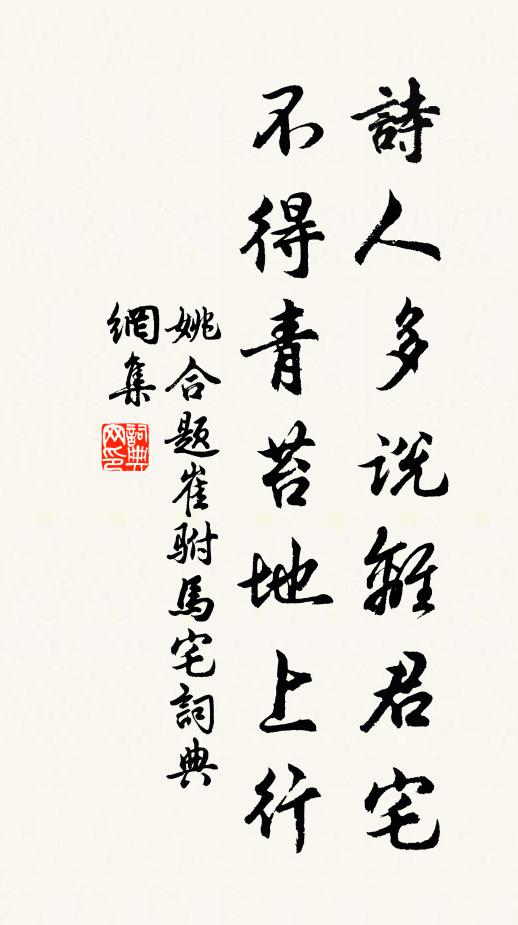 詩人多説離君宅
不得青苔地上行
姚合題崔駙馬宅詞典
網集
詞典
网印